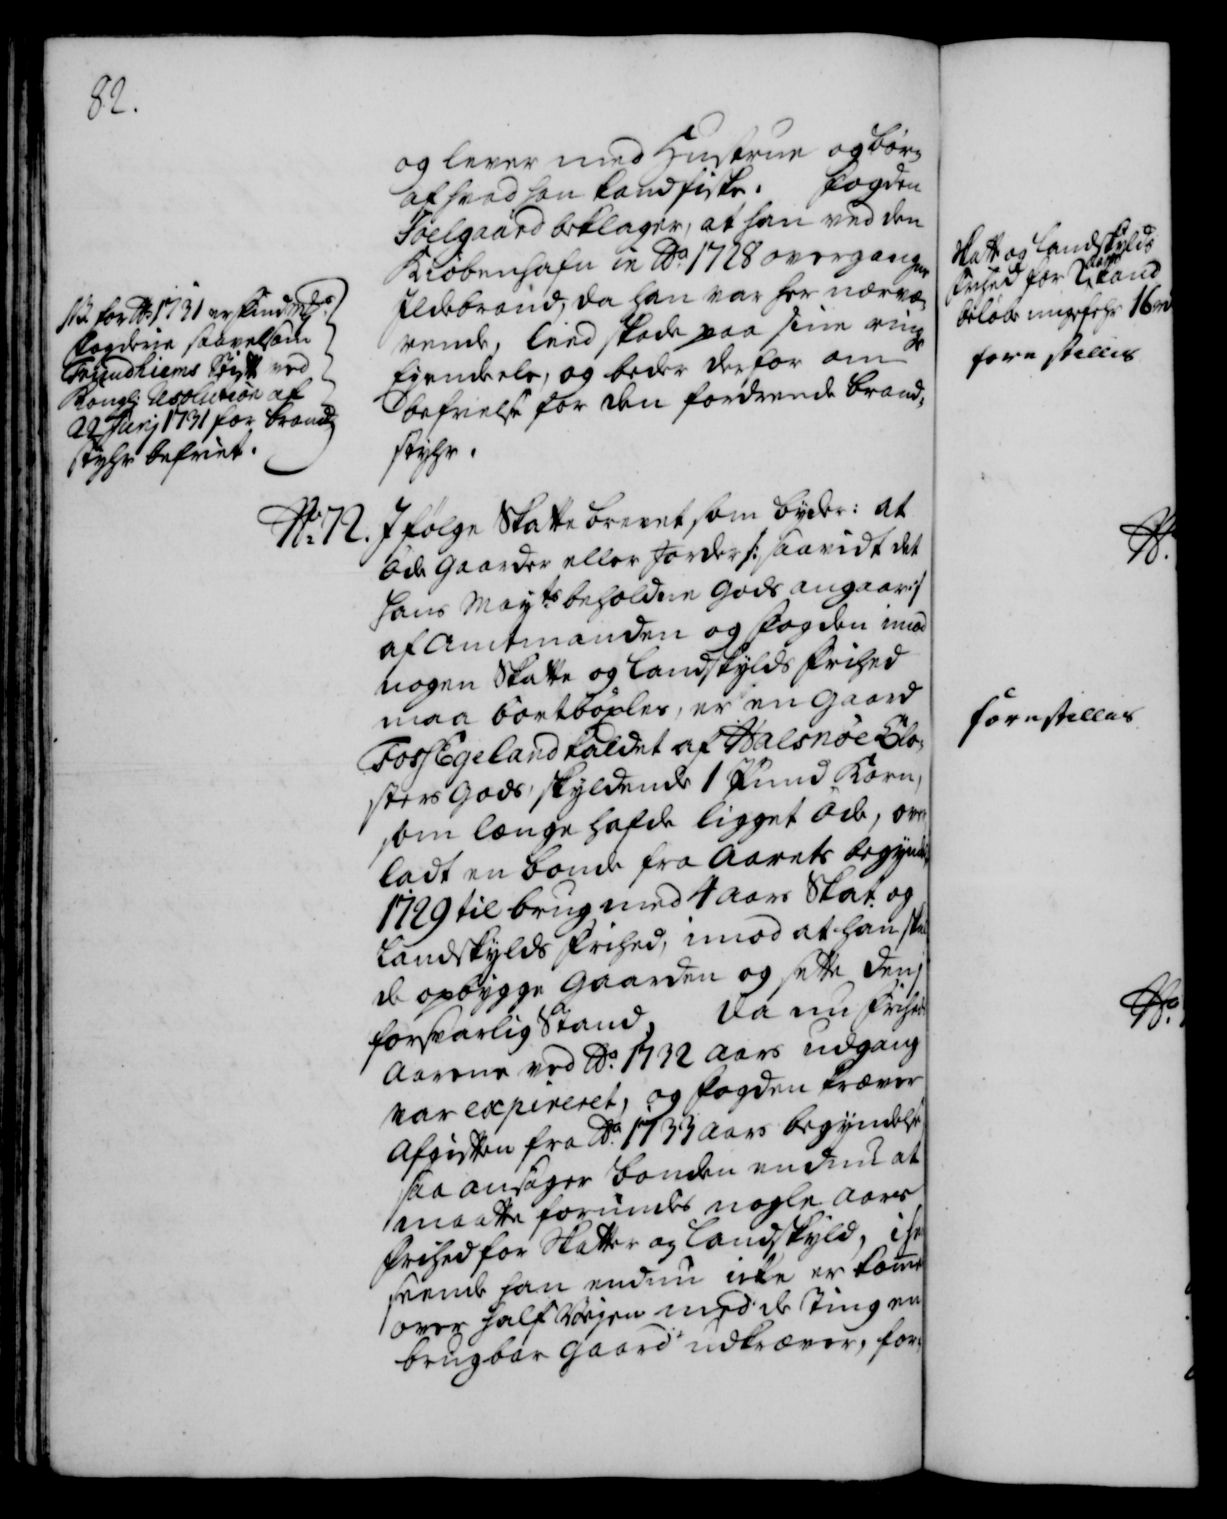 82.
og lever med Hustrue og børn
af hvad han kand fiske. Fogden
Soelgaard beklager, at han ved den
Kiøbenhafn in Ao. 1728 overgangne
Ildebrand, da han var her nærvæ-
rende, leed skade paa sine ringe
Ejendeele, og beder derfor om
befrielse for den fordrende brand-
styhr.
NB for Ao. 1731 er
Fogderie saavelsom
Trundhiems Stift ved
Kongl: Resolution af
22 Junj 1731 for brand-
styhr befriet.
No. 72. I følge Skatte brevet som byder: at
øde Gaarder eller Jorder /: saavidt det
Hans Mayts. beholdne Gods angaar :/
af Amtmanden og Fogden imod
nogen Skatte og Landskylds Frihed
maa bortbøxles, er en Gaard
Foss Egeland kaldet af Halsnøe Clo-
sters Gods, skyldende 1 Pund Korn,
som længe hafde ligget øde, over
ladt en bonde fra Aarets begyndelse
1729 til brug med 4 Aars Skat og
Landskylds Frihed, imod at han skul-
de opbygge Gaarden og sette den j
forsvarlig Stand, Da nu Friheds
Aarene ved Ao. 1732 Aars udgang
var expireret, og Fogden kræver
Afgiften fra Ao. 1733 Aars begyndelse
saa ansøger bonden endnu at
maatte forundes nogle Aars
Frihed for Skatter og Landskyld, i hen
seende han endnu icke er kommen
over half Vejen med de Ting en
brugbar Gaard udkræver, for-
Skatt og Landskylds
Frihed for 2 Aar
beløbe ungefehr 16 rd
forestilles
No.
forestilles
No.